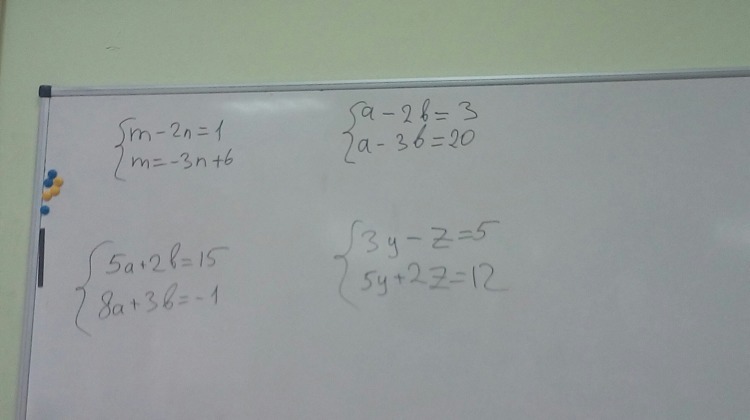 m-2n=1
m=-3n+6
a-2b=3
a-3b=20
5a+2b=15
8a+3b=-1
3y-z=5
5y+2z=12